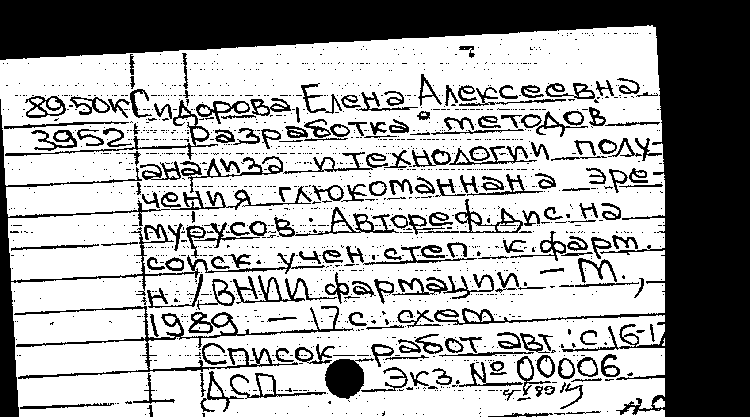 89-50К Сидорова, Елена Алексеевна.
3952 Разработка методов
анализа и технологии полу-
чения глюкоманнана эре-
мурусов : Автореф. дис. на
соиск. учен. степ. к. фарм.
н. / ВНИИ фармации. — М.,
1989. — 17 с. : схем.
Список работ авт. : с. 16-17
ДСП. Экз. № 00006.